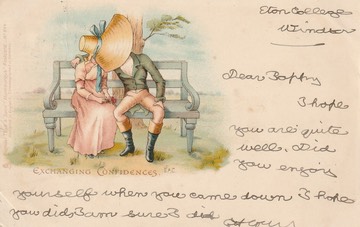 Eton College
Windsor
EXCHANGING CONFIDENCES, ETC.
Dear
I hope
you are quite
well. Did
you enjoy
yourself when you came down I hope
you did I am sure I did